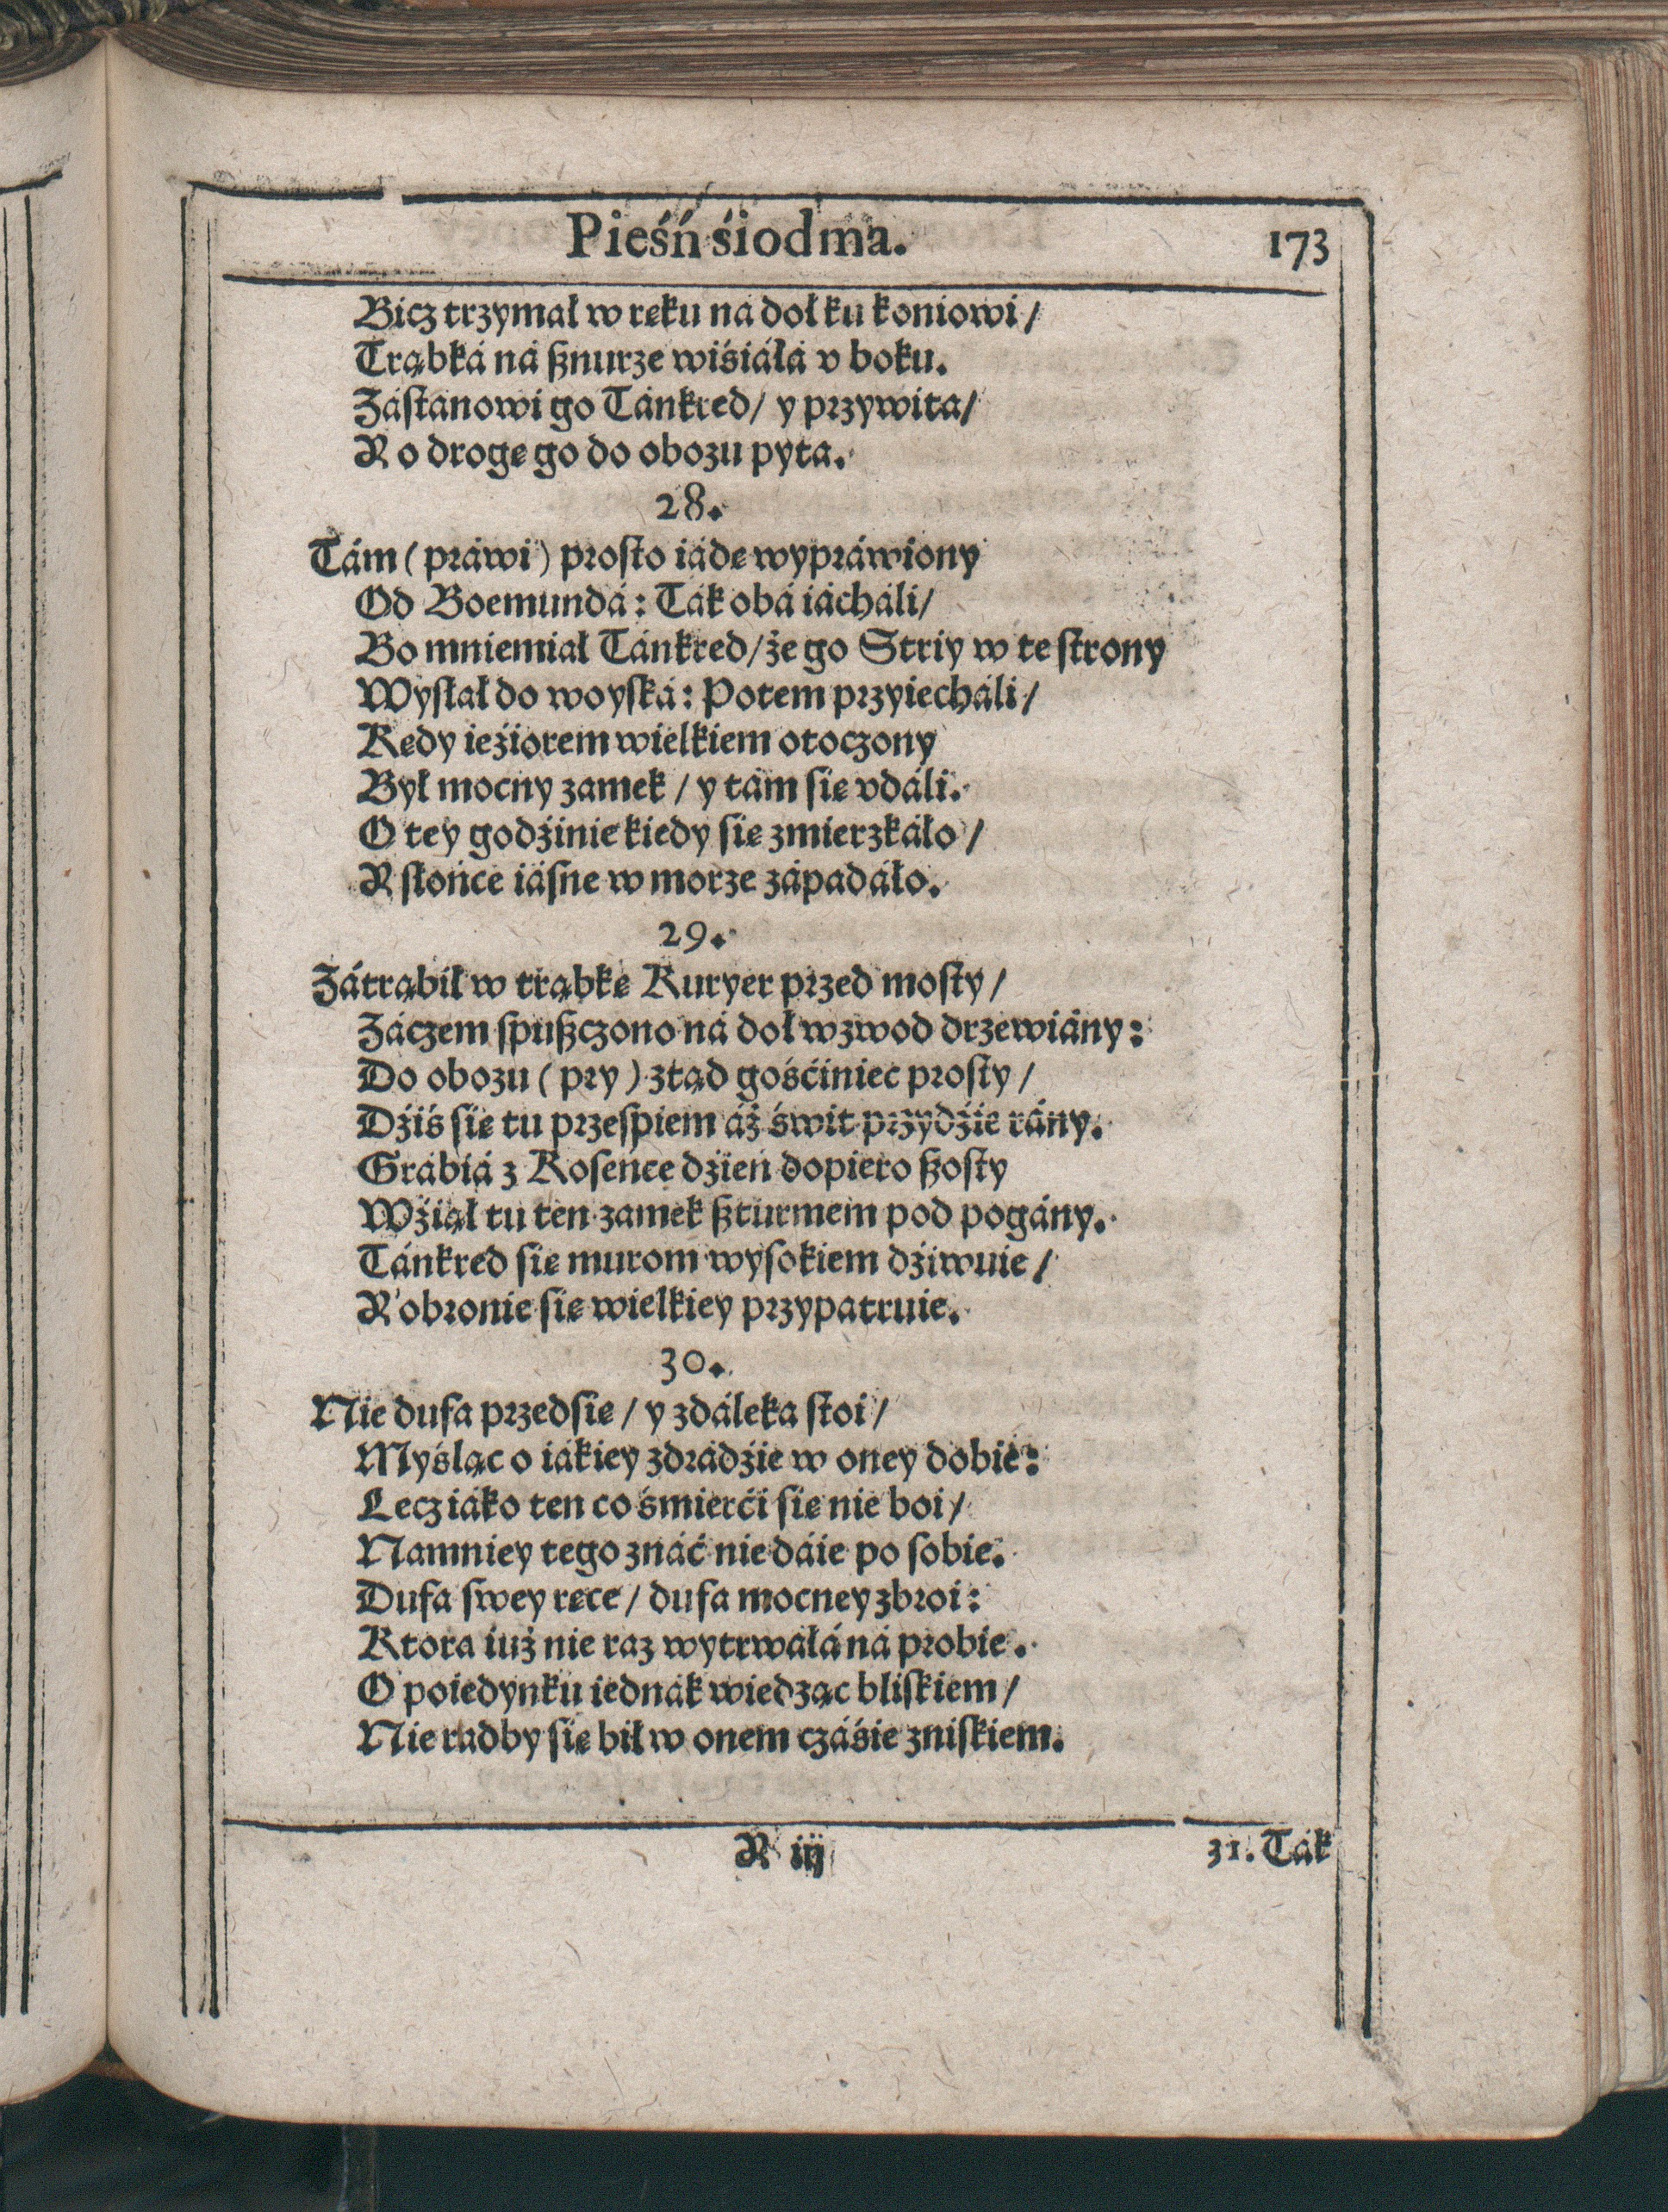 Pieśń śiodma. 173
Bicz trzymał w ręku ná doł ku koniowi/
Trąbká ná ßnurze wiśiáłá v boku.
Zástánowi go Tánkred/ y przywita/
Y o drogę go do obozu pyta.
28.
Tám (práwi) prosto iádę wypráwiony
Od Boemundá: Ták obá iácháli/
Bo mniemiał Tánkred/ że go Striy w te strony
Wysłał do woyská: Potem przyiecháli/
Kędy ieźiorem wielkiem otoczony
Był mocny zamek/ y tám się vdáli.
O tey godźinie kiedy się zmierzkáło/
Y słońce iásne w morze západáło.
29.
Zátrąbił w trąbkę Kuryer przed mosty/
Záczem spußczono ná doł wzwod drzewiány:
Do obozu (pry) ztąd gośćiniec prosty/
Dźiś się tu prześpiem áż świt przydźie rány.
Grábiá z Kosence dźień dopiero ßosty
Wźiął tu ten zamek ßturmem pod pogány.
Tánkred się murom wysokiem dźiwuie/
Y obronie się wielkiey przypatruie.
30.
Nie dufa przedsię/ y zdáleka stoi/
Myśląc o iákiey zdrádźie w oney dobie:
Lecz iáko ten co śmierći się nie boi/
Namniey tego znáć nie dáie po sobie.
Dufa swey ręce/ dufa mocney zbroi:
Ktora iuż nie raz wytrwáłá ná probie.
O poiedynku iednák wiedząc bliskiem/
Nie radby się bił w onem czáśie z niskiem.
Y iij 31. Ták